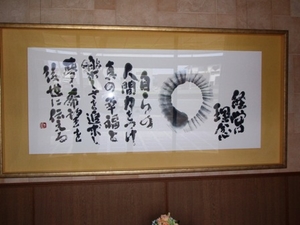 経営理念
自らの
人間力をつけ
真の幸福を
楽しさを追求し
夢と希望を
後世に伝える